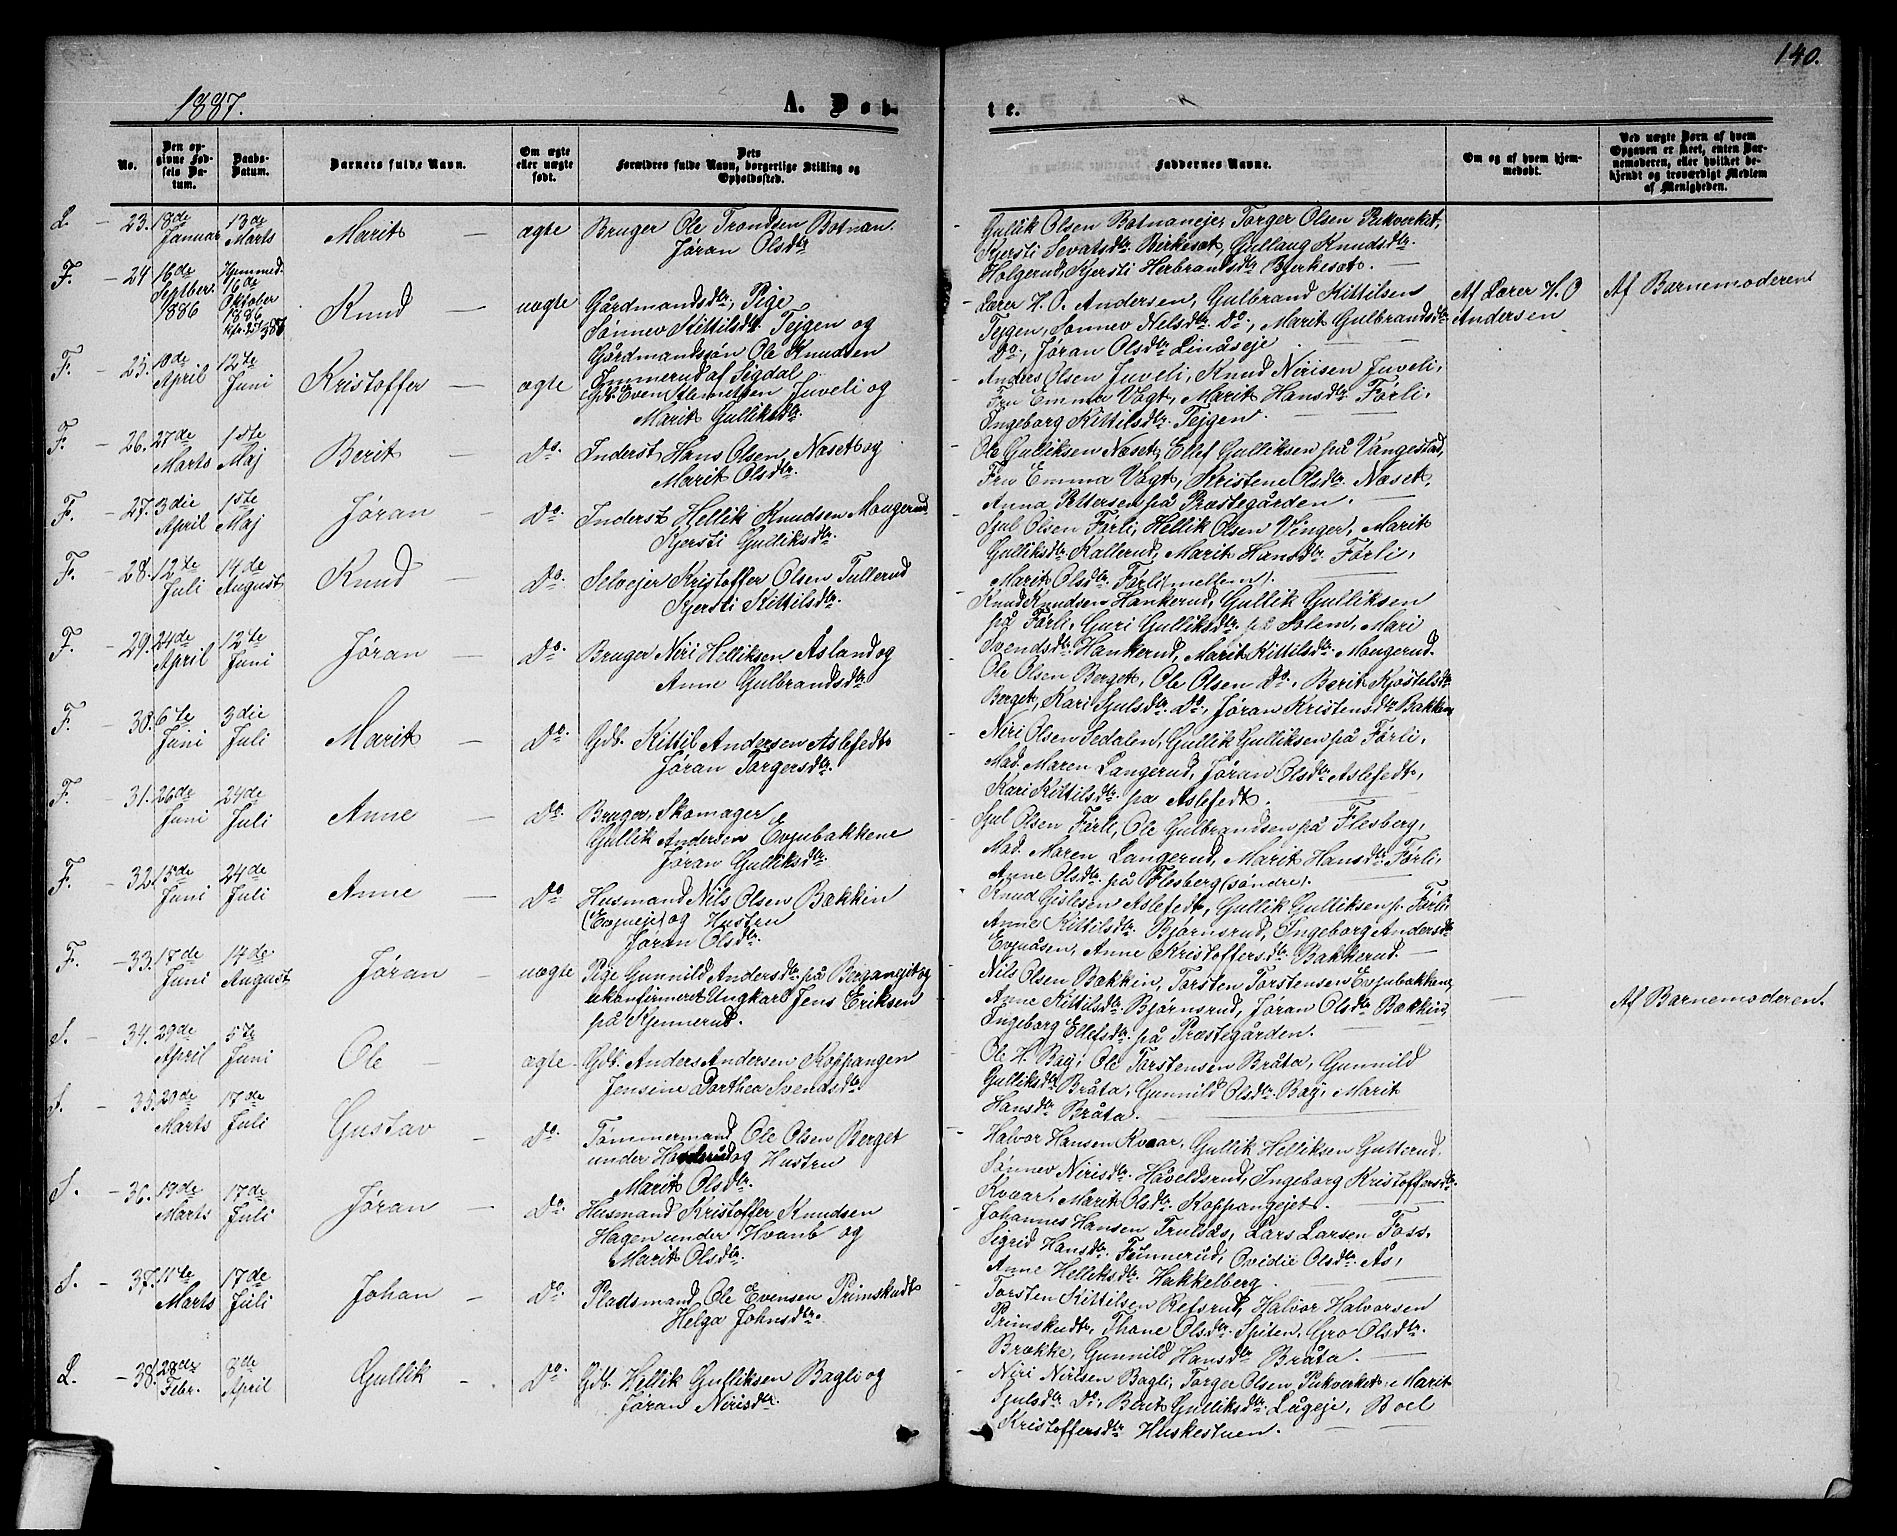 140.
1887.
A. Døb-
te.
No.
Den op-
givne Fød-
sels Da-
tum.
Daabs-
Datum.
Barnets fulde Navn.
Om ægte
eller uægte
født.
Dets
Forældres fulde Navn, borgerlige Stilling og
Opholdssted.
Faddernes Navne.
Om og af hvem hjem-
medøbt.
Ved uægte Barn af hvem
Opgaven er skeet, enten Bar-
nemoderen, eller hvilket be-
kjendt og troværdigt Medlem
af Menigheden.
L. - 23. 18de Januar 13de Marts Marit - ægte Bruger Ole Trondsen Botnan
Jøran Olsdtr
Gullik Olsen Botnaneje, Torger Olsen Pukverket,
Kjersti Sevatsdtr Birkeset, Gullaug Knudsdtr
Holgerud, Kjersti Herbrandsdtr Bjerkeset.
F. - 24 16de Septber. 1886 Hjemmed. 16de Oktober 1886 Knud - uægte Gårdmandsdtr, Pige
Sønnev Kittilsdtr Tejgen og
Gårdmandssøn Ole Knudsen
Emmerud af Sigdal
Lærer H. O. Andersen, Gulbrand Kittilsen
Tejgen, Sønnev Nelsdtr Do, Marit Gulbrandsdtr
Do, Jøran Olsdtr Linåseje
Af Lærer H. O
Andersen
Af Barnemoderen
F. - 25. 10de April 12te Juni Kristoffer - ægte Gdb. Even Steinulsen Juveli og
Marit Gulliksdtr.
Anders Olsen Juveli, Knud Nirisen Juveli,
Fru Emma Vogt, Marit Hansdtr Førli,
Ingeborg Kittilsdtr Tejgen.
F. - 26. 27de Marts 1ste Maj Berit - Do. Inderst Hans Olsen Næset og
Marit Olsdtr.
Ole Gulliksen Næset, Ellef Gulliksen på Vangestad,
Fru Emma Vogt, Kristene Olsdtr Næset,
Anna Pettersen på Præstegården.
F. - 27. 3die April 1ste Maj Jøran - Do. Inderst Hellik Knudsen Mougerud
Kjersti Gulliksdtr.
Gjul Olsen Førli, Hellik Olsen Vinger, Marit
Gulliksdtr Kallerud, Marit Hansdtr Førli,
Marit Olsdtr Førli (mellem).
F. - 28. 12te Juli 14de August Knud - Do. Selvejer Kristoffer Olsen Tullerud
Kjersti Kittilsdtr.
Knud Knudsen Hankerud, Gullik Gulliksen
på Førli, Guri Gulliksdtr på Solem, Mari
Svendsdtr Hankerud, Marit Kittilsdtr Mougerud.
F. - 29. 24de April 12te Juni Jøran - Do. Bruger Niri Helliksen Åsland og
Anne Gulbrandsdtr
Ole Olsen Berget, Ole Olsen Do, Berit Kjøstelsdtr
Berget, Kari Gjulsdtr Do, Jøran Kristensdtr Bakken
F. - 30. 6te Juni 3die Juli Marit - Do. Gdb. Kittil Andersen Aslefedt
Jøran Torgersdtr.
Niri Olsen Sedalen, Gullik Gulliksen på Førli,
Mad. Maren Langerud, Jøran Olsdtr Aslefedt,
Kari Kittilsdtr på Aslefedt.
F. - 31. 26de Juni 24de Juli Anne - Do. Bruger, Skomager
Gullik Andersen Evjubakkene
Jøran Gulliksdtr.
Gjul Olsen Førli, Ole Gulbrandsen på Flesberg,
Mad. Maren Langerud, Marit Hansdtr Førli,
Anne Olsdtr på Flesberg (søndre).
F. - 32. 15de Juni 24de Juli Anne - Do Husmand Nils Olsen Bækkin
(Evjueje) og Hustru
Jøran Olsdtr.
Knud Gislesen Aslefedt, Gullik Gulliksen p. Førli
Anne Kittilsdtr Bjørnsrud, Ingeborg Andersdtr
Evjuåsen, Anne Kristoffersdtr Bakkerud. -
F. - 33. 17de Juni 14de August Jøran - uægte Pige Gunnild Andersdtr på Berganejet og
ukonfirmeret Ungkarl Jens Eriksen
på Kjennerud.
Nils Olsen Bækkin, Torsten Torstensen Evjubakkene,
Anne Kittilsdtr Bjørnsrud, Jøran Olsdtr Bækkin,
Ingeborg Ellefsdtr på Præstegården.
-
Af Barnemoderen.
S. - 34. 29de April 5te Juni Ole - ægte Gdb. Anders Andersen Koppangen
Jensine Dorthea Svendsdtr
Ole H. Bay, Ole Torstensen Bråta, Gunnild
Gulliksdtr Bråta, Gunnild Olsdtr Bay, Marit
Hansdtr Bråta.
S. - 35. 20de Marts 17de Juli Gustav - Do. Tømmermand Ole Olsen Berget
under og Hustru
Marit Olsdtr.
Halvor Hansen Kvaar, Gullik Helliksen Gutterud,
Sønnev Nirisdtr Håveldsrud, Ingeborg Kristoffersdtr
Kvaar, Marit Olsdtr Koppangejet.
S. - 36. 19de Marts 17de Juli Jøran - Do. Husmand Kristoffer Knudsen
Hagen under Hvamb og
Marit Olsdtr.
Johannes Hansen Trulsås, Lars Larsen Foss,
Sigrid Hansdtr Funnerud, Ovidie Olsdtr Ås,
Anne Helliksdtr Hakkelberg.
S. - 37. 11te Marts 17de Juli Johan - Do. Pladsmand Ole Evensen Primskudt
Helga Johnsdtr.
Torsten Kittilsen Refsrud, Halvor Halvorsen
Primskudt, Thone Olsdtr Spiten, Gro Olsdtr
Brække, Gunnild Hansdtr Bråta.
L. - 38. 28de Febr. 8de April Gullik - Do. Gdb. Hellik Gulliksen Bagli og
Jøran Nirisdtr.
Niri Nirisen Bagli, Torger Olsen Pukverket, Marit
Gjulsdtr Do, Berit Gulliksdtr Lågeje, Boel
Kristoffersdtr Huskestuen.